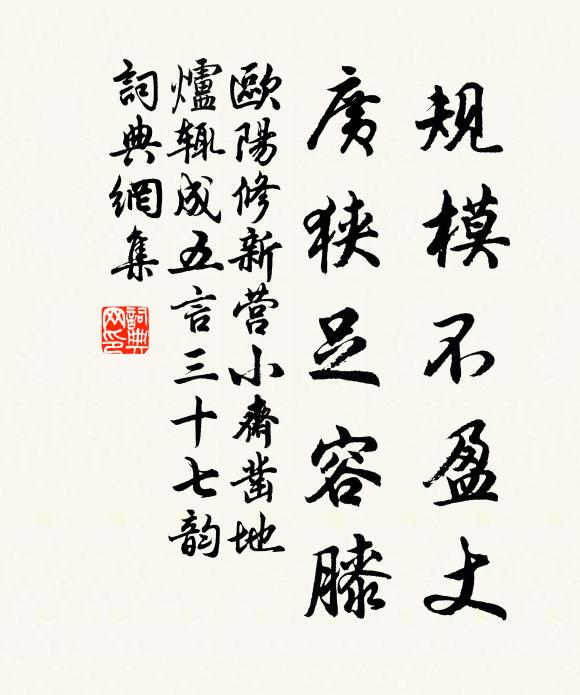 規模不盈丈
廣狹足容膝
歐陽修新营小齋凿地
爐辄成五言三十七韵
詞典網集
詞典网印